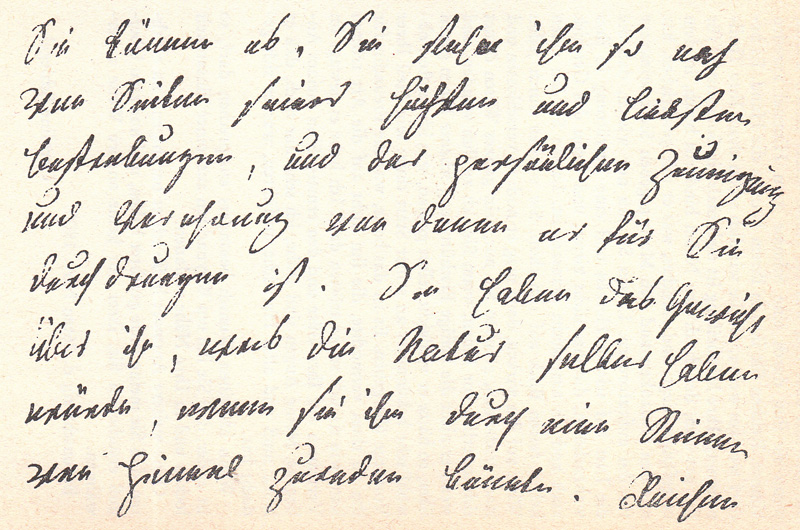 Sie können es. Sie stehen ihm so nah
von Seiten seiner höchsten und liebsten
Bestrebungen, und der persönlichen Zuneigung
und Verehrung von denen er für Sie
durchdrungen ist. Sie haben das Gewicht
über ihn, was die Natur selber haben
würde, wenn sie ihm durch eine Stimme
vom Himmel zureden könnte. Reichen